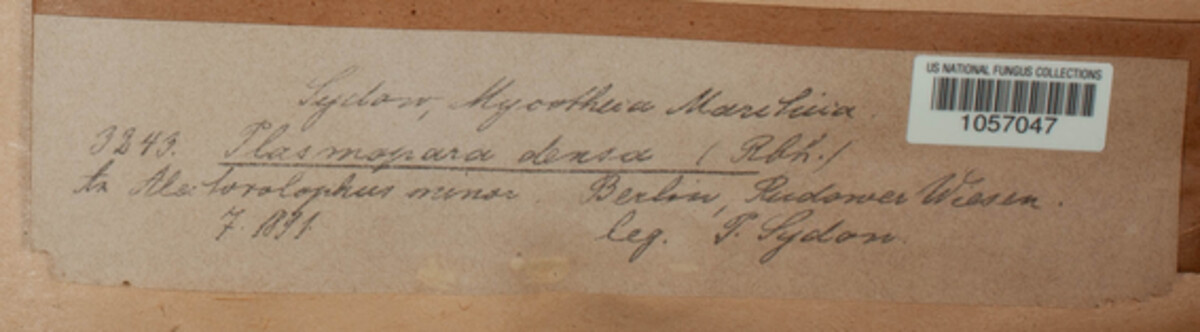 US NATIONAL FUNGUS COLLECTIONS
1057047
Sydow, Mycotheca Marchica.
3243. Plasmopara densa (Rbh.)
An Alectorolophus minor. Berlin, Rudower Wiesen.
7. 1891. leg. P. Sydow.